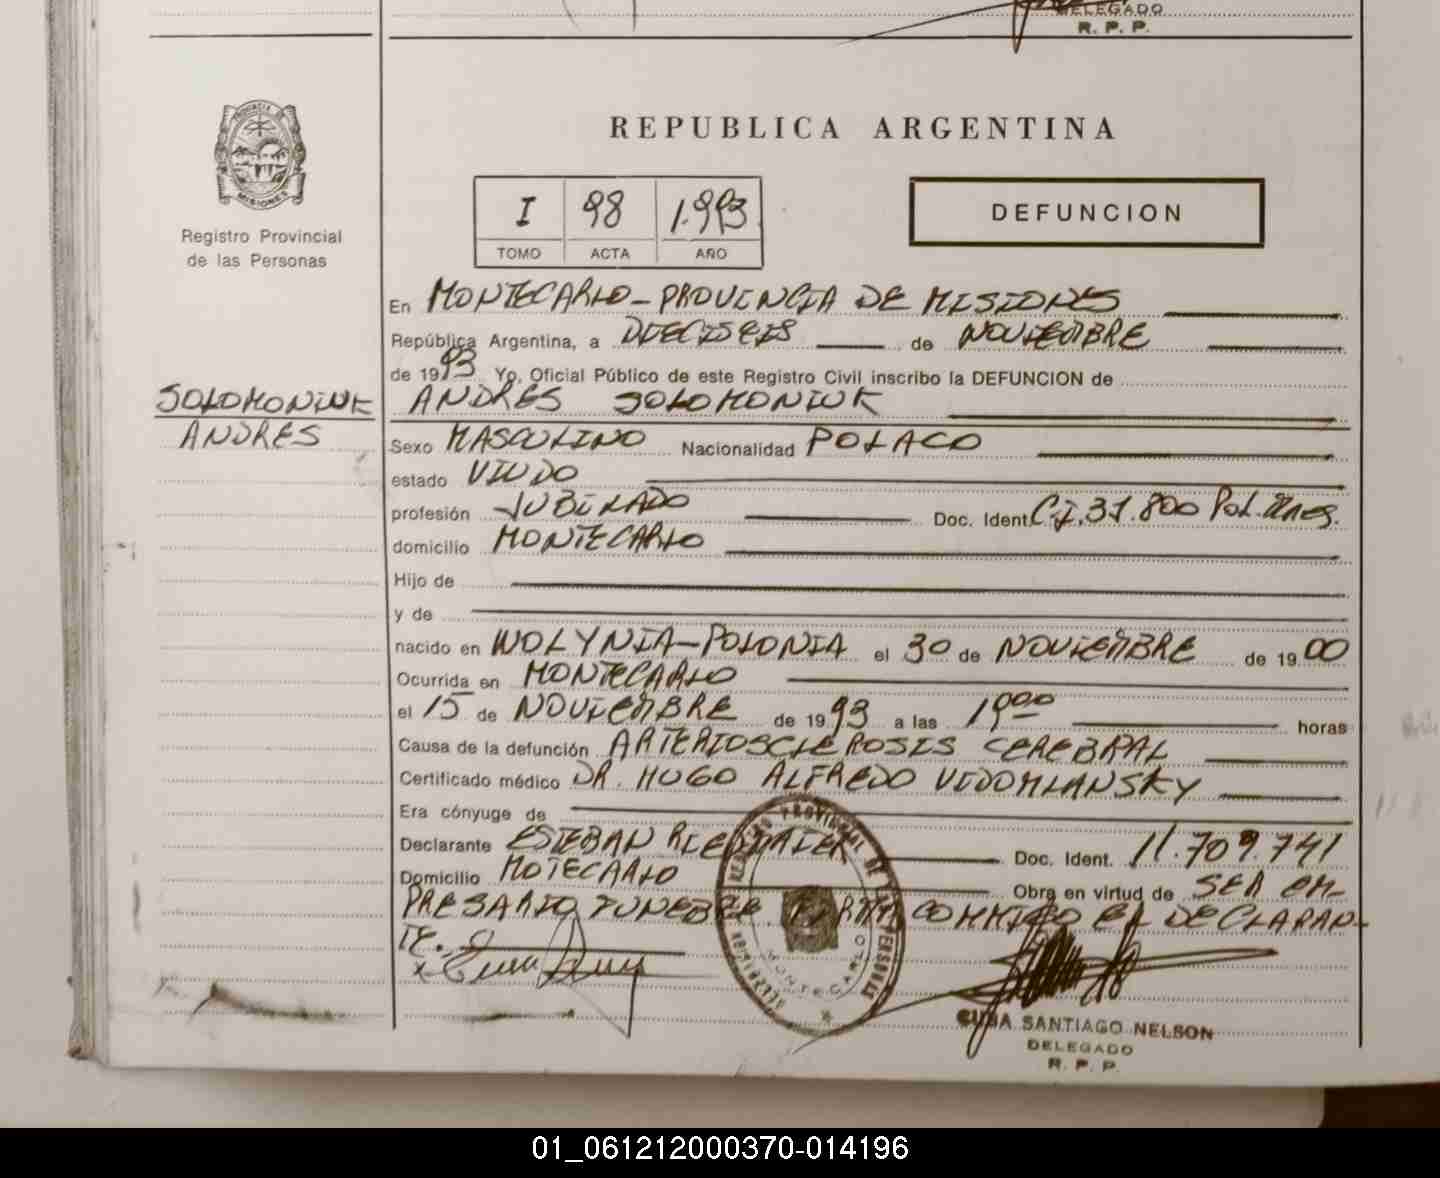 DELEGADO
R. P. P.
PROVINCIA DE
MISIONES
Registro Provincial
de las Personas
REPUBLICA ARGENTINA
I 98 1.993
TOMO ACTA AÑO
DEFUNCION
En MONTECARLO-PROVINCIA DE MISIONES
República Argentina, a DIECISEIS de NOVIEMBRE
de 1993 Yo, Oficial Público de este Registro Civil inscribo la DEFUNCION de
SOLOMONIUK
ANDRES
ANDRES SOLOMONIUK
Sexo MASCULINO Nacionalidad POLACO
estado VIUDO
profesión JUBILADO Doc. Ident. C.I. 31.800 Pol. Mnes.
domicilio MONTECARLO
Hijo de
y de
nacido en WOLYNIA-POLONIA el 30 de NOVIEMBRE de 1900
Ocurrida en MONTECARLO
el 15 de NOVIEMBRE de 1993 a las 19,00 horas
Causa de la defunción ARTERIOSCLEROSIS CEREBRAL
Certificado médico DR. HUGO ALFREDO VIDOMLANSKY
Era cónyuge de
Declarante ESTEBAN Doc. Ident. 11.709.741
Domicilio MOTECARLO Obra en virtud de SER EM-
PRESARIO FUNEBRE. FIRMA CONMIGO EL DECLARAN-
TE.
REGISTRO PROVINCIAL DE LAS PERSONAS
MONTECARLO
SANTIAGO NELSON
DELEGADO
R. P. P.
01_061212000370-014196